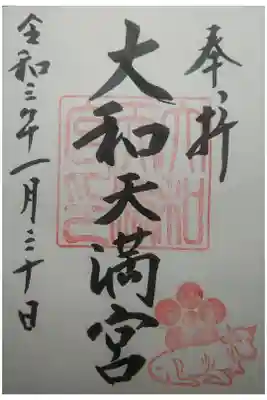 奉拝
大和天満宮
令和三年一月三十日